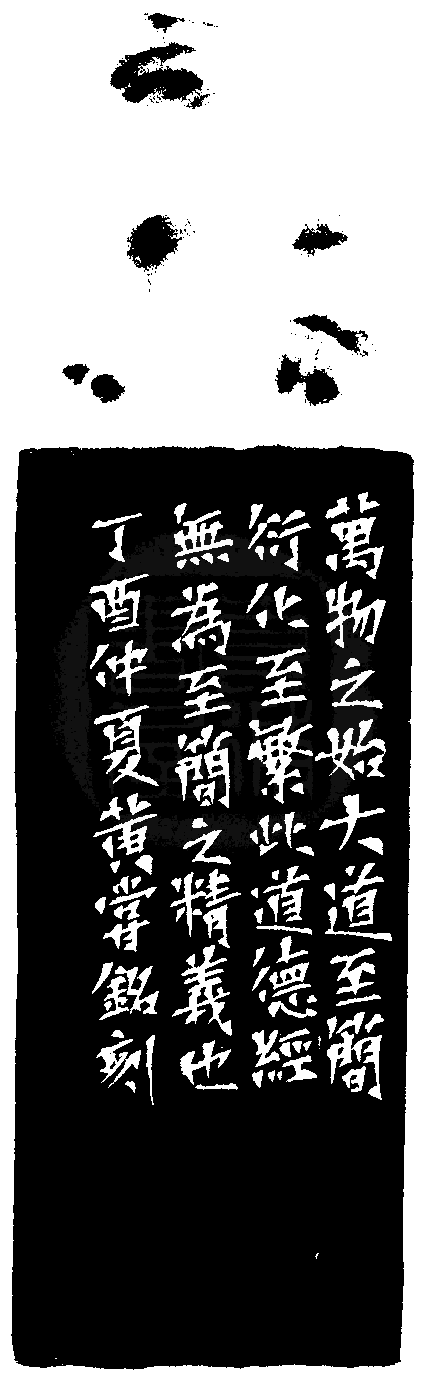 萬物之始大道至簡
衍化至繁此道德經
無為至簡之精義也
丁酉仲夏黄掌銘刻